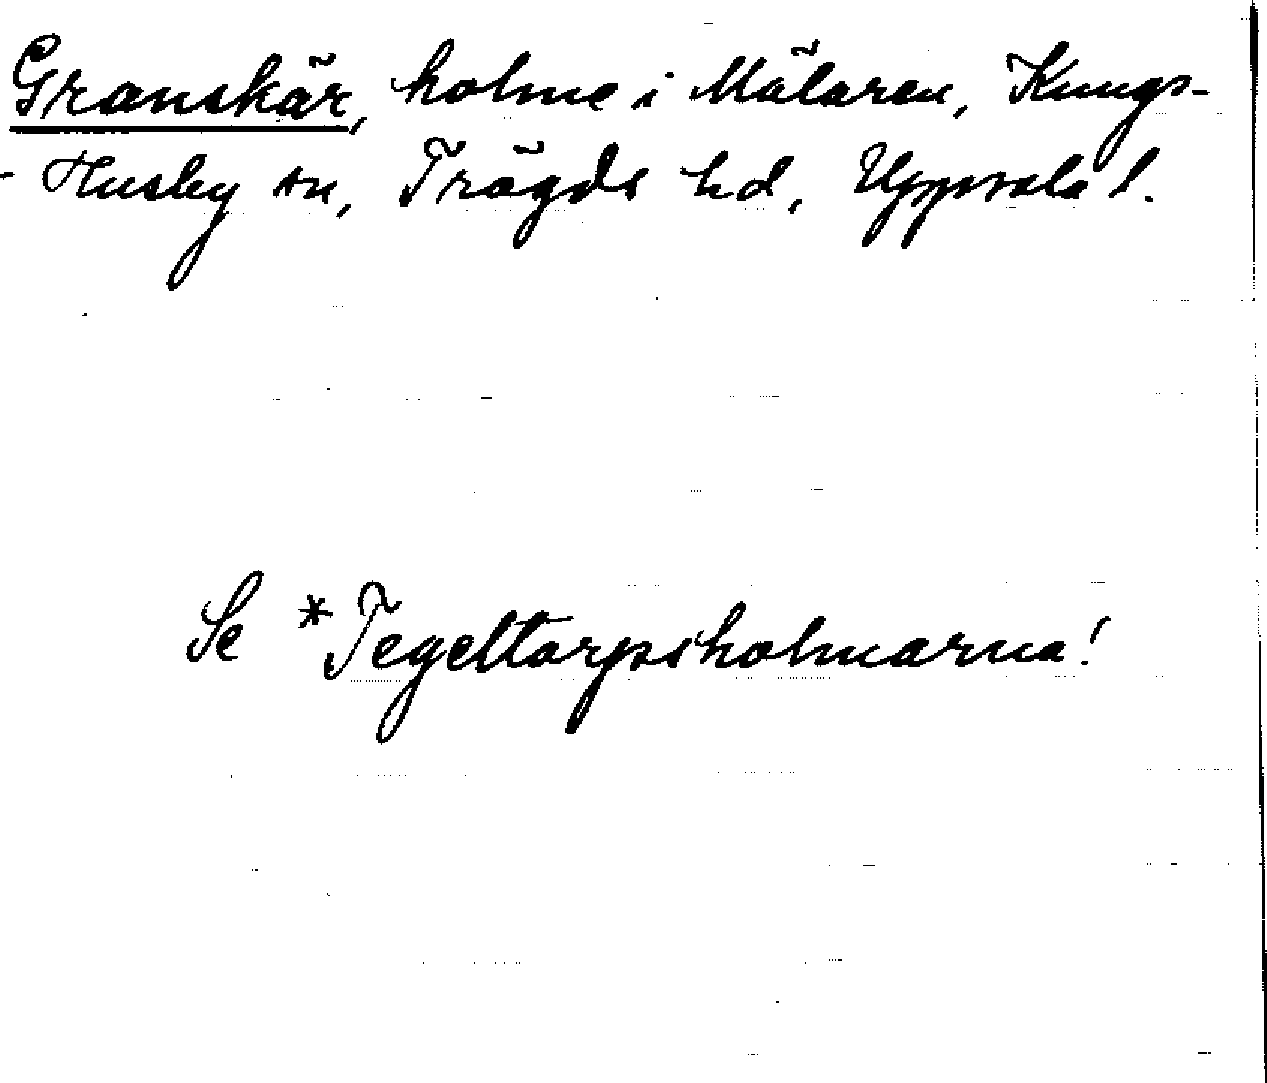 Granskär, holme i Mälaren, Kungs-
-Husby sn, Trögds hd, Uppsala l.
Se *Tegeltorpsholmarna!